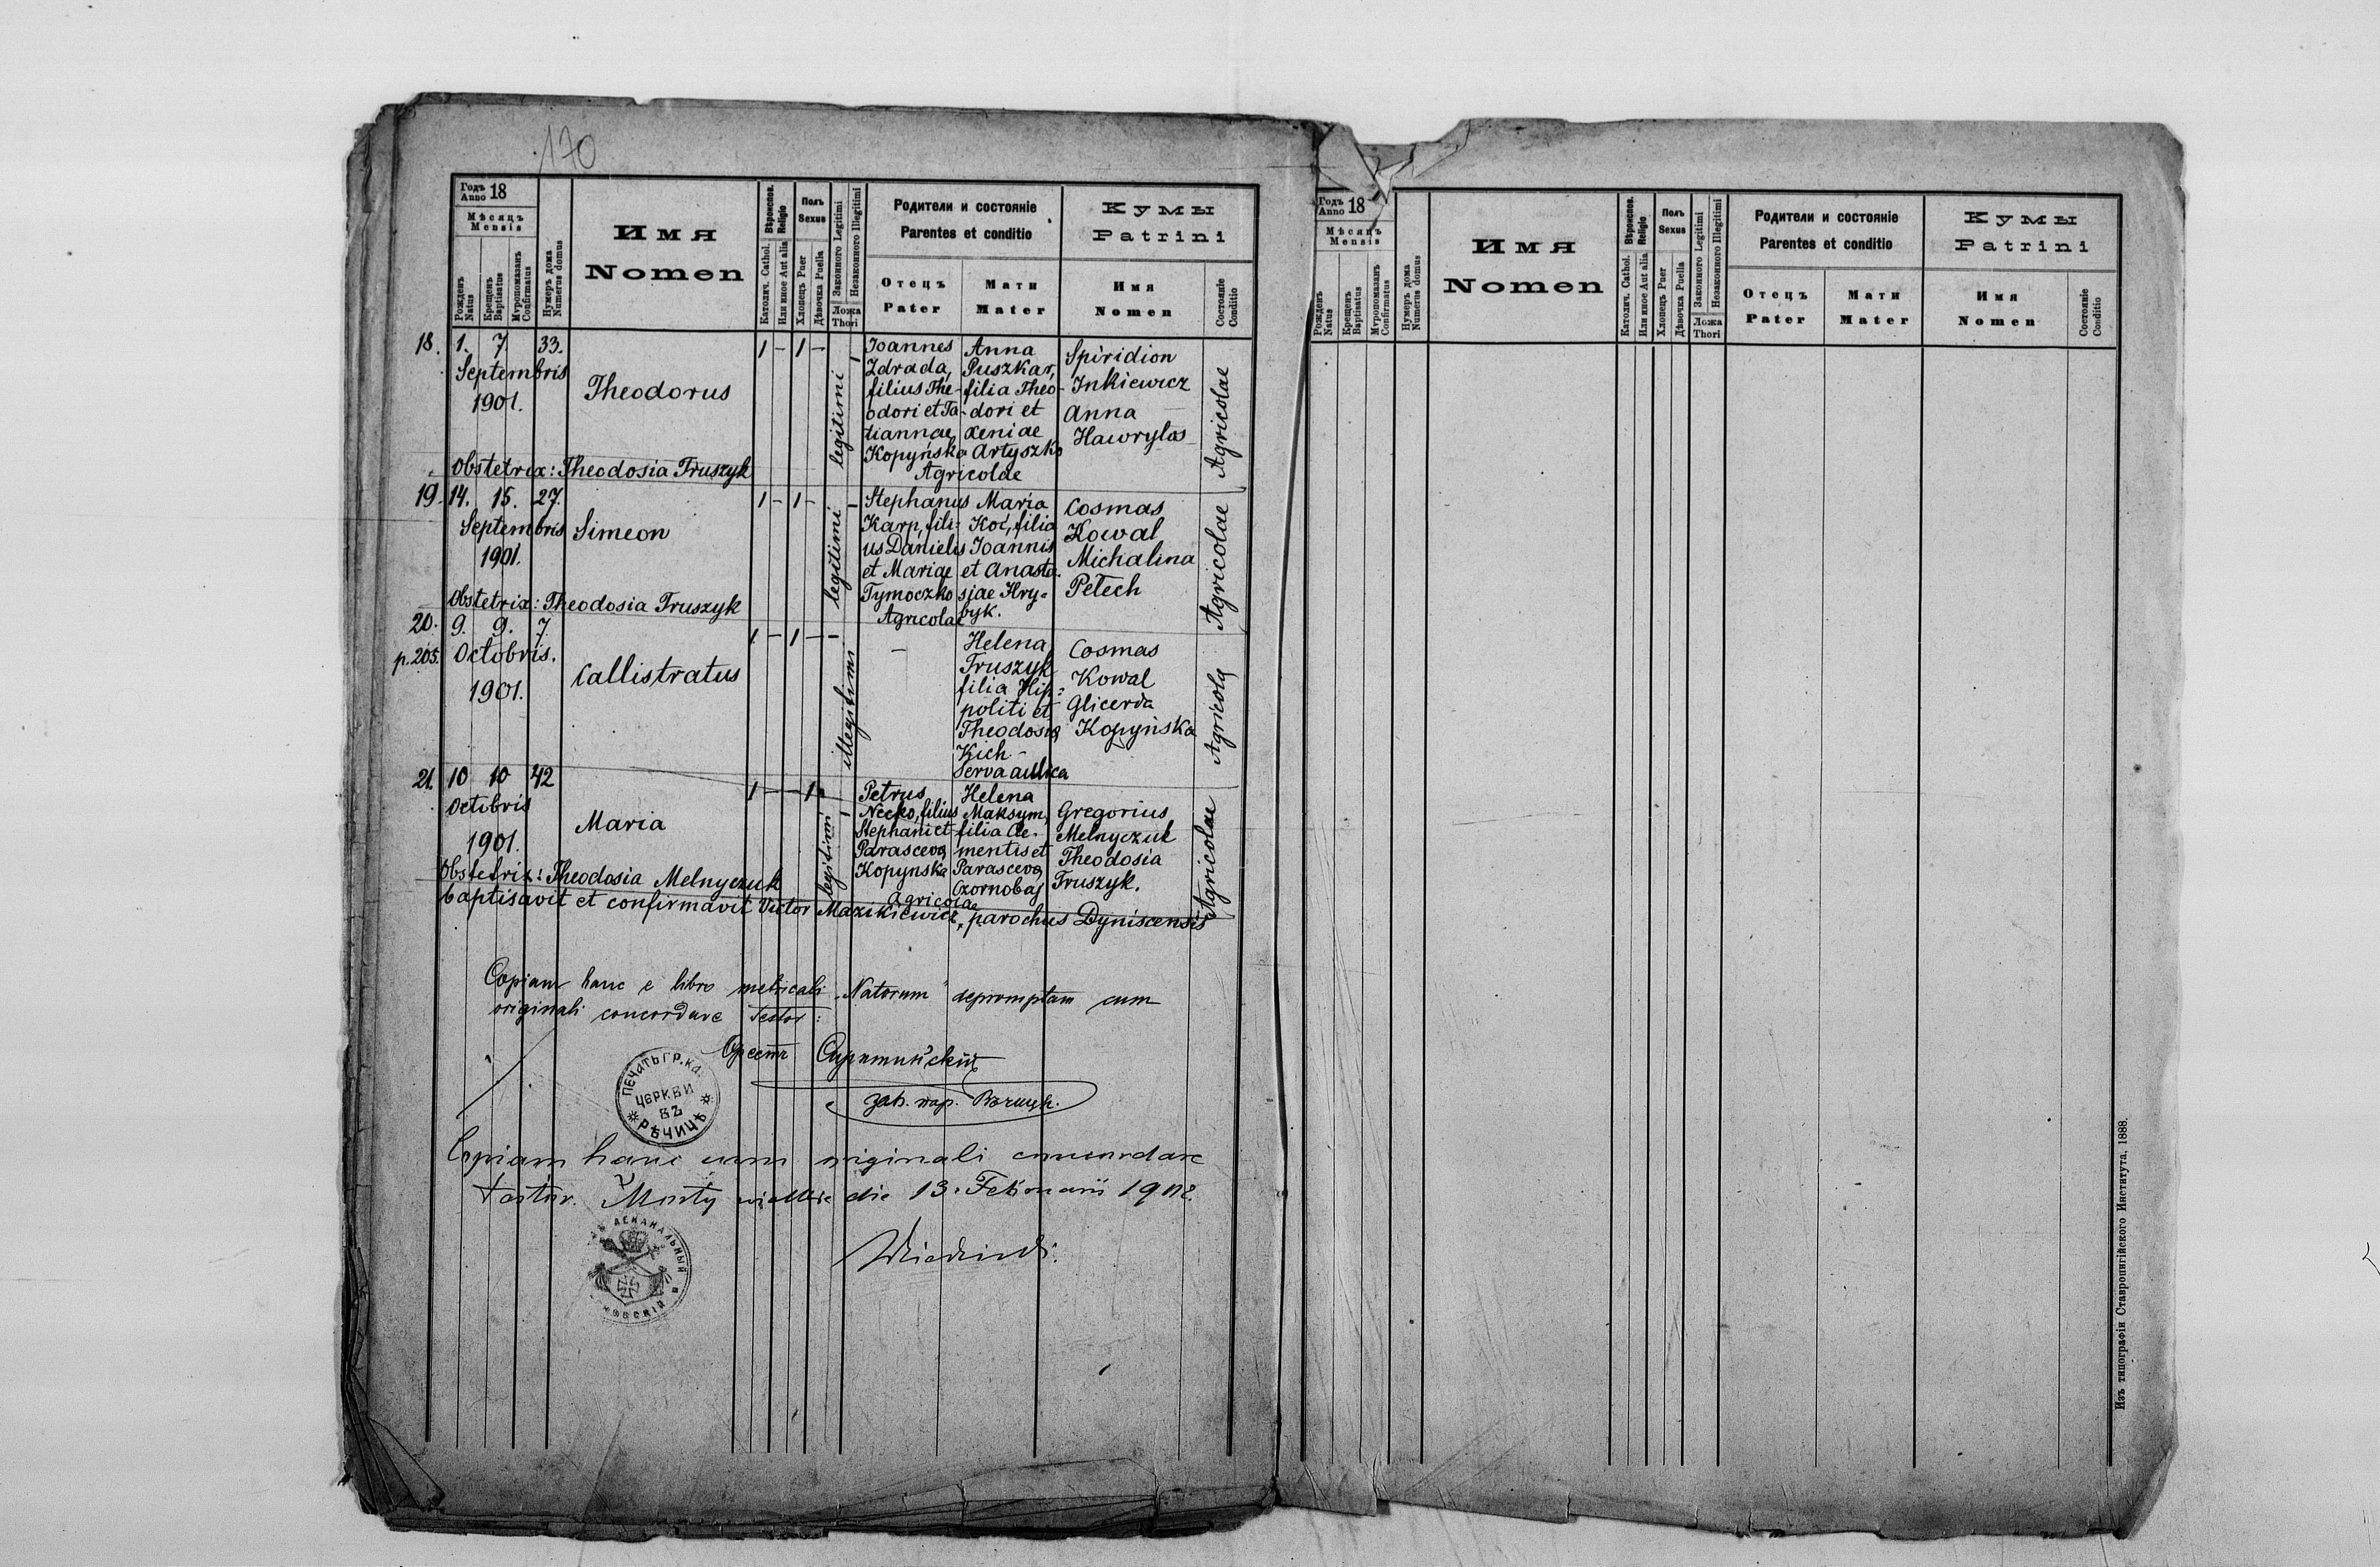 170
Годъ Anno 18
Мѣсяцъ
Mensis
Рожденъ Natus
Крещенъ Baptisatus
Мѵропомазанъ Confirmatus
Нумеръ дома Numerus domus
Имя
Nomen
Вѣроиспов. Religio
Католич. Cathol.
Или иное Aut alia
Полъ
Sexus
Хлопець Puer
Дѣвочка Puella
Законного Legitimi
Незаконного Illegitimi
Ложа
Thori
Родители и состояніе
Parentes et conditio
Отецъ
Pater
Мати
Mater
Кумы
Patrini
Имя
Nomen
Состояніе
Conditio
18. 1. 7. 33.
Septembris
1901.
Theodorus
1 - 1 -
legitimi
Joannes
Zdrada,
filius The-
odori et Ta-
tiannae
Kopyńska
Anna
Puszkar,
filia Theo-
dori et
Xeniae
Artyszko
Agricolae
Spiridion
Inkiewicz
Anna
Hawrylas
Agricolae
Obstetrix: Theodosia Truszyk
19. 14. 15. 27.
Septembris
1901.
Simeon
1 - 1 -
legitimi
Stephanus
Karp, fili-
us Danielis
et Mariae
Tymoczko
Maria
Koć, filia
Joannis
et Anasta-
siae Hry-
byk.
Agricolae
Cosmas
Kowal
Michalina
Petech
Agricolae
Obstetrix: Theodosia Truszyk
20. 9. 9. 7.
p. 205. Octobris.
1901.
Callistratus
1 - 1 -
illegitimi
-
Helena
Truszyk
filia Hip-
politi et
Theodosia
Kich -
Serva aulica
Cosmas
Kowal
Gliceria
Kopyńska
Agricola
21. 10 10 42
Octobris
1901.
Maria
1 - 1
legitimi
Petrus
Necko, filius
Stephani et
Parasceva
Kopyńska
Helena
Maksym,
filia Cle-
mentis et
Parasceva
Czornobaj
Agricolae
Gregorius
Melnyczuk
Theodosia
Truszyk.
Agricolae
Obstetrix: Theodosia Melnyczuk
baptisavit et confirmavit Victor Mazikiewicz, parochus Dyniscensis
Copiam hanc e libro metricali „Natorum" depromptam cum
originali concordare testor:
Орестъ
зав. пар. Рѣчицк.
ПЕЧАТЬ ГР. КА.
ЦЕРКВИ
ВЪ
РѢЧИЦѢ
Copiam hanc cum originali concordare
testor. Mosty wielkie die 13. Februarii 1902.
ДЕКАНАЛЬНЫЙ
Годъ Anno 18
Мѣсяцъ
Mensis
Рожденъ Natus
Крещенъ Baptisatus
Мѵропомазанъ Confirmatus
Нумеръ дома Numerus domus
Имя
Nomen
Вѣроиспов. Religio
Католич. Cathol.
Или иное Aut alia
Полъ
Sexus
Хлопець Puer
Дѣвочка Puella
Законного Legitimi
Незаконного Illegitimi
Ложа
Thori
Родители и состояніе
Parentes et conditio
Отецъ
Pater
Мати
Mater
Кумы
Patrini
Имя
Nomen
Состояніе
Conditio
Изъ типографіи Ставропигійского Института, 1888.